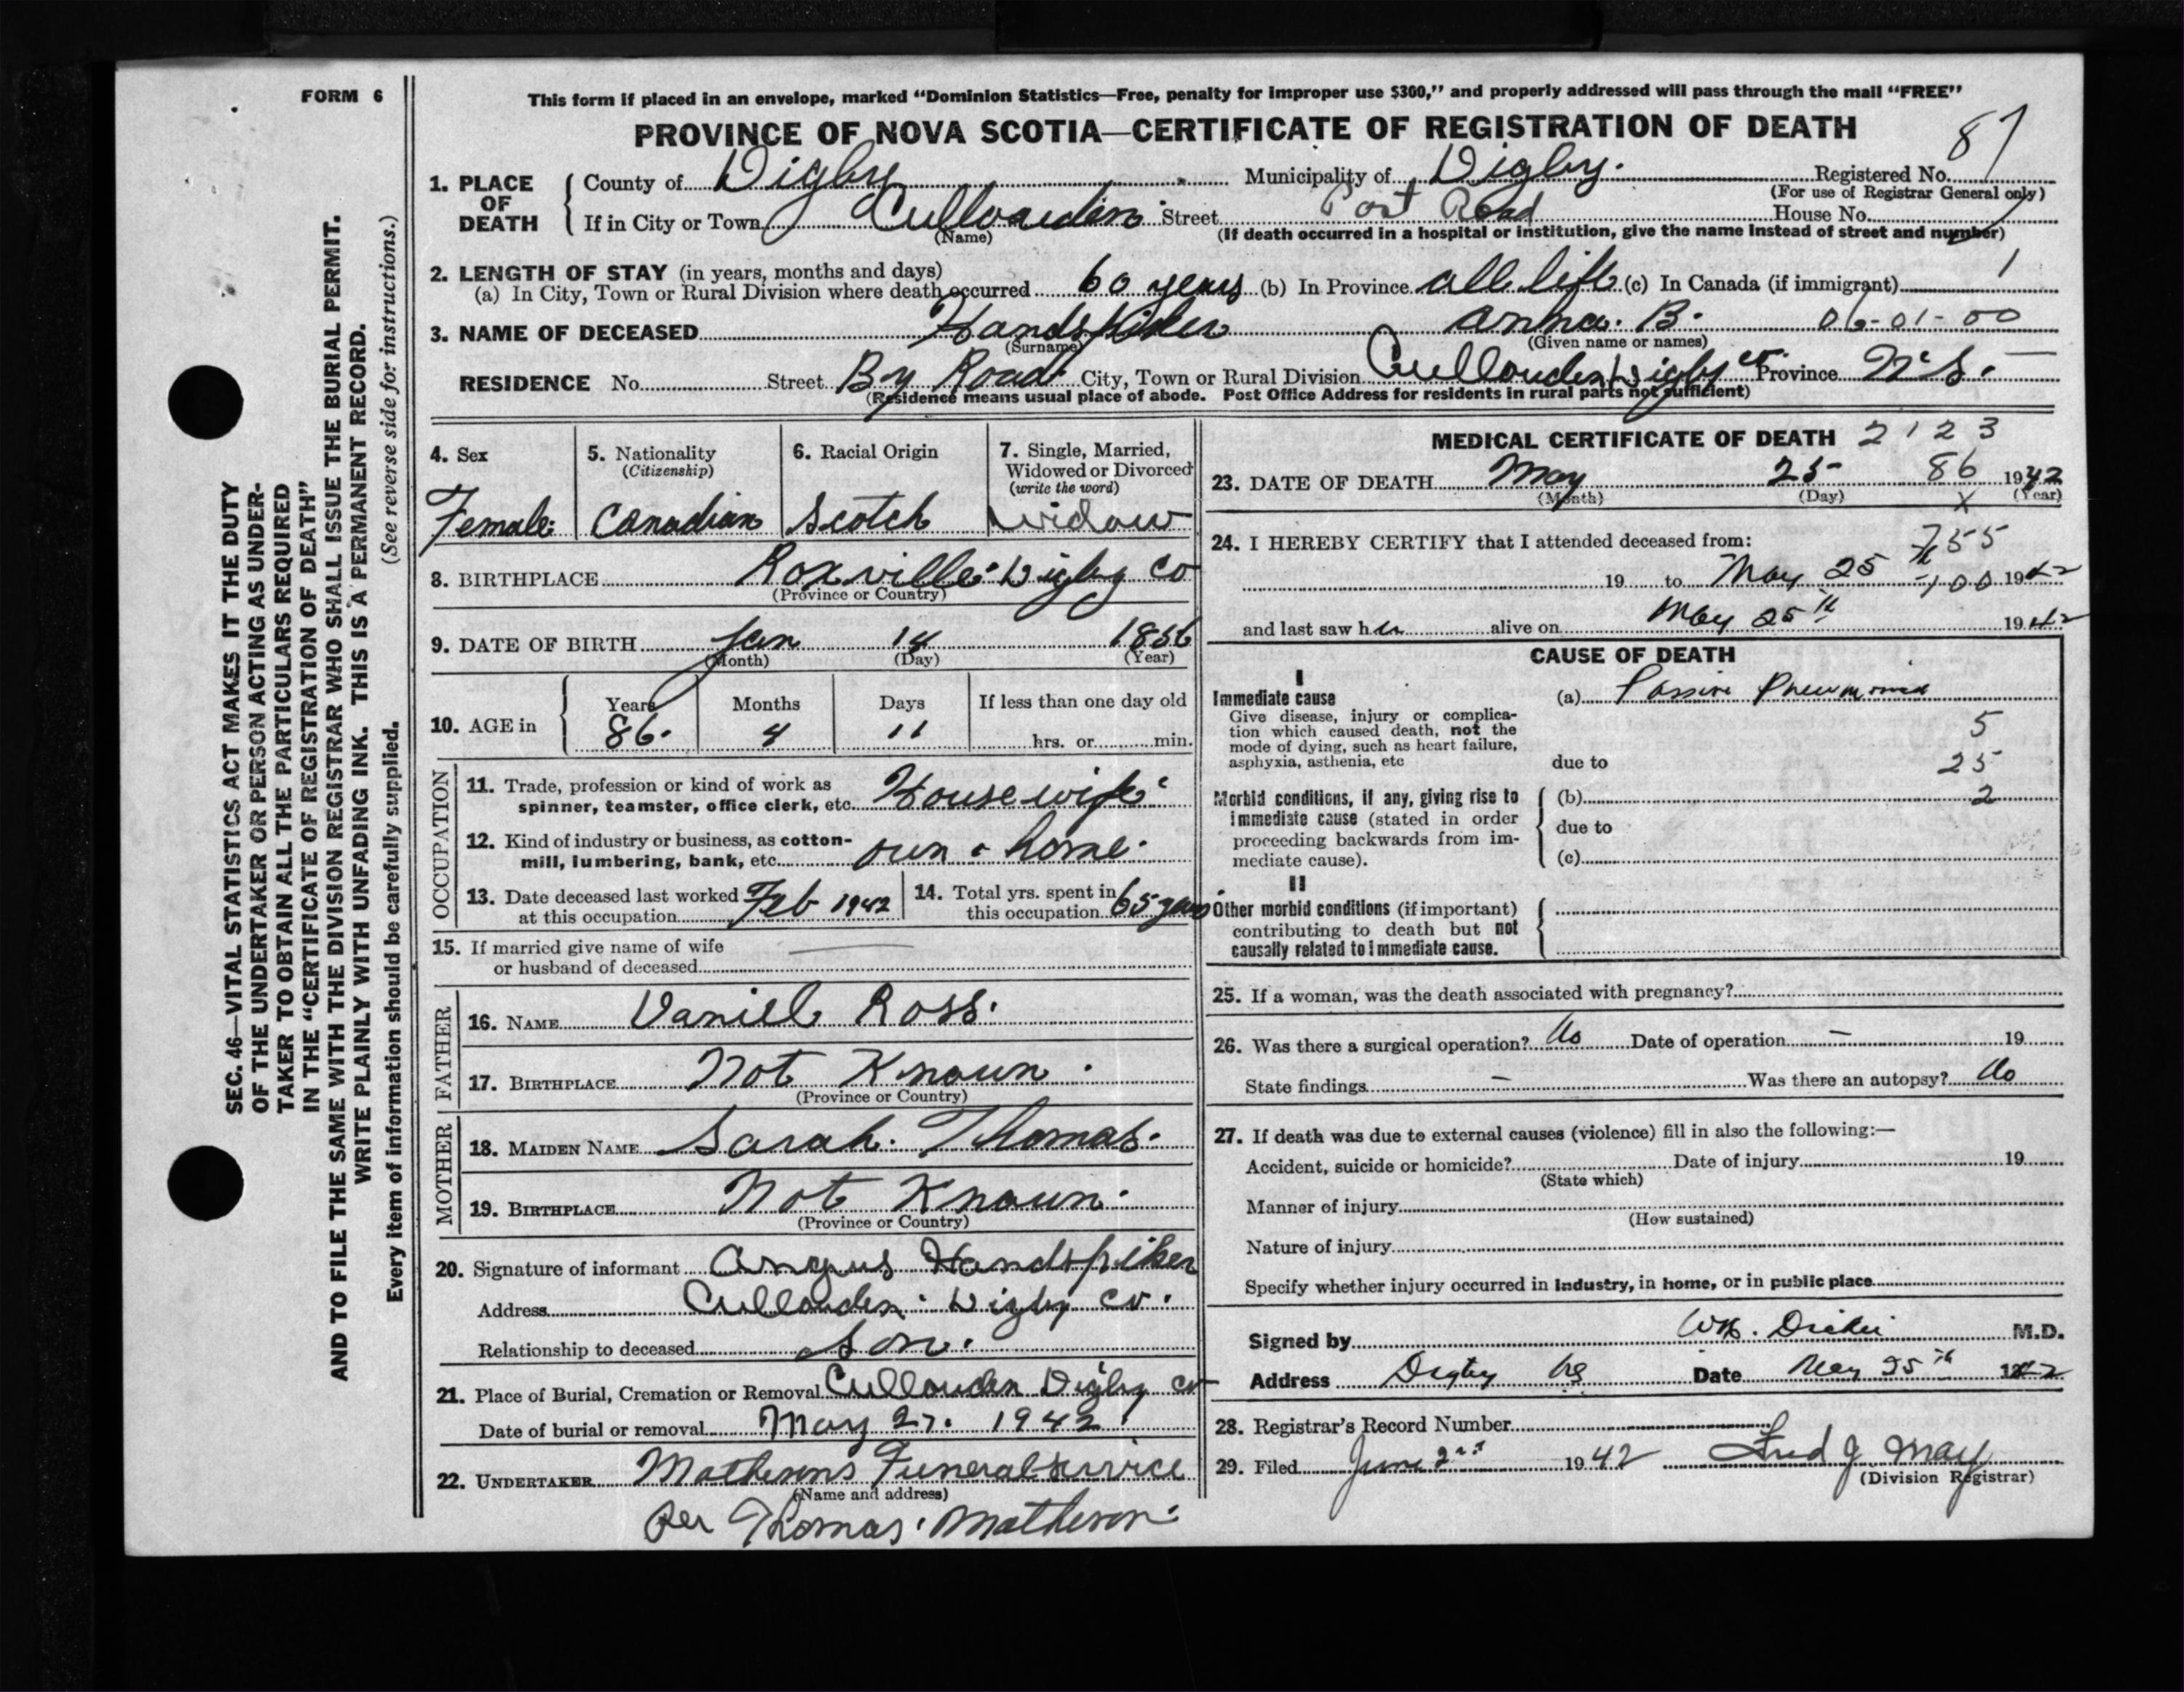 FORM 6
SEC. 46—VITAL STATISTICS ACT MAKES IT THE DUTY
OF THE UNDERTAKER OR PERSON ACTING AS UNDER-
TAKER TO OBTAIN ALL THE PARTICULARS REQUIRED
IN THE "CERTIFICATE OF REGISTRATION OF DEATH"
AND TO FILE THE SAME WITH THE DIVISION REGISTRAR WHO SHALL ISSUE THE BURIAL PERMIT.
WRITE PLAINLY WITH UNFADING INK. THIS IS A PERMANENT RECORD.
Every item of information should be carefully supplied. (See reverse side for instructions.)
This form if placed in an envelope, marked "Dominion Statistics—Free, penalty for improper use $300," and properly addressed will pass through the mail "FREE"
PROVINCE OF NOVA SCOTIA—CERTIFICATE OF REGISTRATION OF DEATH
87
1. PLACE OF DEATH
County of Digby Municipality of Digby. Registered No.
(For use of Registrar General only)
If in City or Town Culloden Street Post Road House No.
(Name) (If death occurred in a hospital or institution, give the name instead of street and number)
2. LENGTH OF STAY (in years, months and days)
(a) In City, Town or Rural Division where death occurred 60 years (b) In Province all life (c) In Canada (if immigrant) 1
3. NAME OF DECEASED Handspiker Anna. B. 06-01-00
(Surname) (Given name or names)
RESIDENCE No. Street By Road City, Town or Rural Division Cullouden Digby co. Province N.S.
(Residence means usual place of abode. Post Office Address for residents in rural parts not sufficient)
4. Sex
Female
5. Nationality
(Citizenship)
Canadian
6. Racial Origin
Scotch
7. Single, Married,
Widowed or Divorced
(write the word)
Widow
8. BIRTHPLACE Roxville Digby Co
(Province or Country)
9. DATE OF BIRTH Jan 14 1856
(Month) (Day) (Year)
10. AGE in
Years Months Days If less than one day old
86. 4 11 hrs. or min.
OCCUPATION
11. Trade, profession or kind of work as
spinner, teamster, office clerk, etc. Housewife
12. Kind of industry or business, as cotton-
mill, lumbering, bank, etc. own home.
13. Date deceased last worked at this occupation Feb 1942
14. Total yrs. spent in this occupation 65 years
15. If married give name of wife
or husband of deceased
FATHER
16. NAME Daniel Ross.
17. BIRTHPLACE Not Known.
(Province or Country)
MOTHER
18. MAIDEN NAME Sarah. Thomas.
19. BIRTHPLACE Not Known.
(Province or Country)
20. Signature of informant Angus Handspiker
Address Cullouden. Digby co.
Relationship to deceased Son.
21. Place of Burial, Cremation or Removal Cullouden Digby co
Date of burial or removal May 27. 1942.
22. UNDERTAKER Matheson's Funeral Service
(Name and address)
Per Thomas. Matheson.
MEDICAL CERTIFICATE OF DEATH 2123
23. DATE OF DEATH May 25 86 1942
(Month) (Day) X (Year)
24. I HEREBY CERTIFY that I attended deceased from: 755
19 to May 25th -100 1942
and last saw her alive on May 25th 1942
CAUSE OF DEATH
I
Immediate cause
Give disease, injury or complica-
tion which caused death, not the
mode of dying, such as heart failure,
asphyxia, asthenia, etc
(a) Passive Pneumonia
5
due to 25
Morbid conditions, if any, giving rise to
immediate cause (stated in order
proceeding backwards from im-
mediate cause).
(b) 2
due to
(c)
II
Other morbid conditions (if important)
contributing to death but not
causally related to immediate cause.
25. If a woman, was the death associated with pregnancy?
26. Was there a surgical operation? No Date of operation — 19
State findings — Was there an autopsy? No
27. If death was due to external causes (violence) fill in also the following:—
Accident, suicide or homicide? Date of injury 19
(State which)
Manner of injury
(How sustained)
Nature of injury
Specify whether injury occurred in industry, in home, or in public place
Signed by Dickie M.D.
Address Digby NS Date May 25th 1942
28. Registrar's Record Number
29. Filed June 2nd 1942 Fred J. May
(Division Registrar)